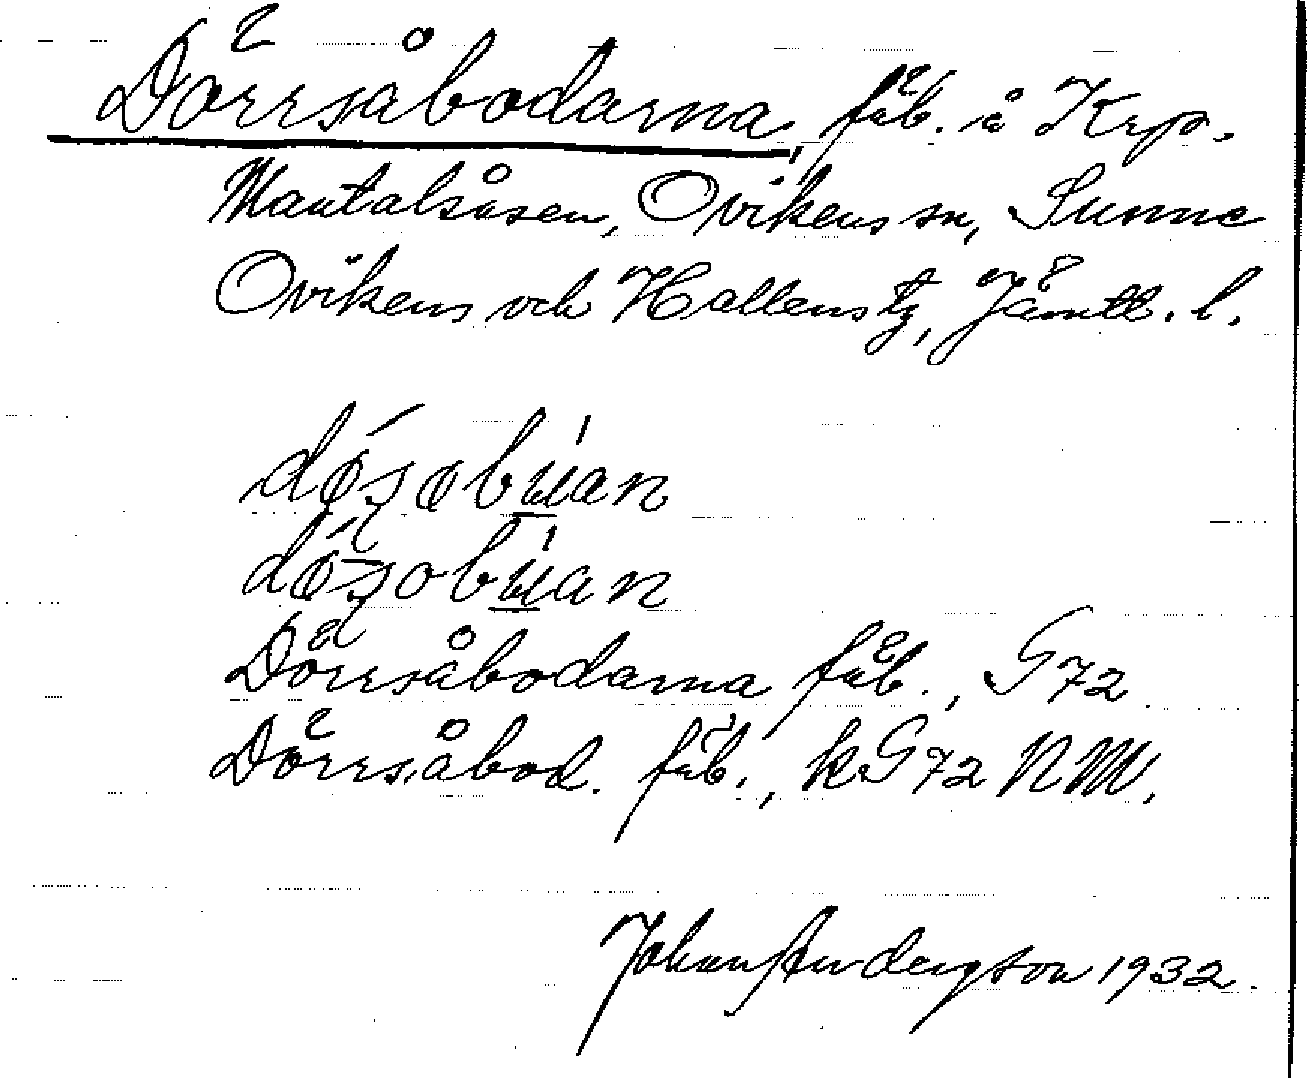 Dörrsåbodarna, fäb. å Krp.
Mantalsåsen, Ovikens sn, Sunne
Ovikens och Hallens tg, Jämtl. l.
Dörrsåbodarna fäb., G72
Dörrsåbod. fäb., kG72 NM.
Johan Anderzson 1932.